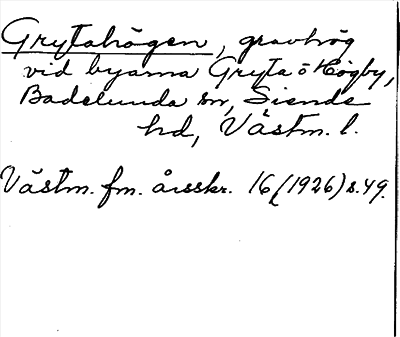 Grytahögen, gravhög
vid byarna Gryta o Högby,
Badelunda sn, Siende
hd, Västm. l.
Västm. fm. årsskr. 16 (1926) s. 49.